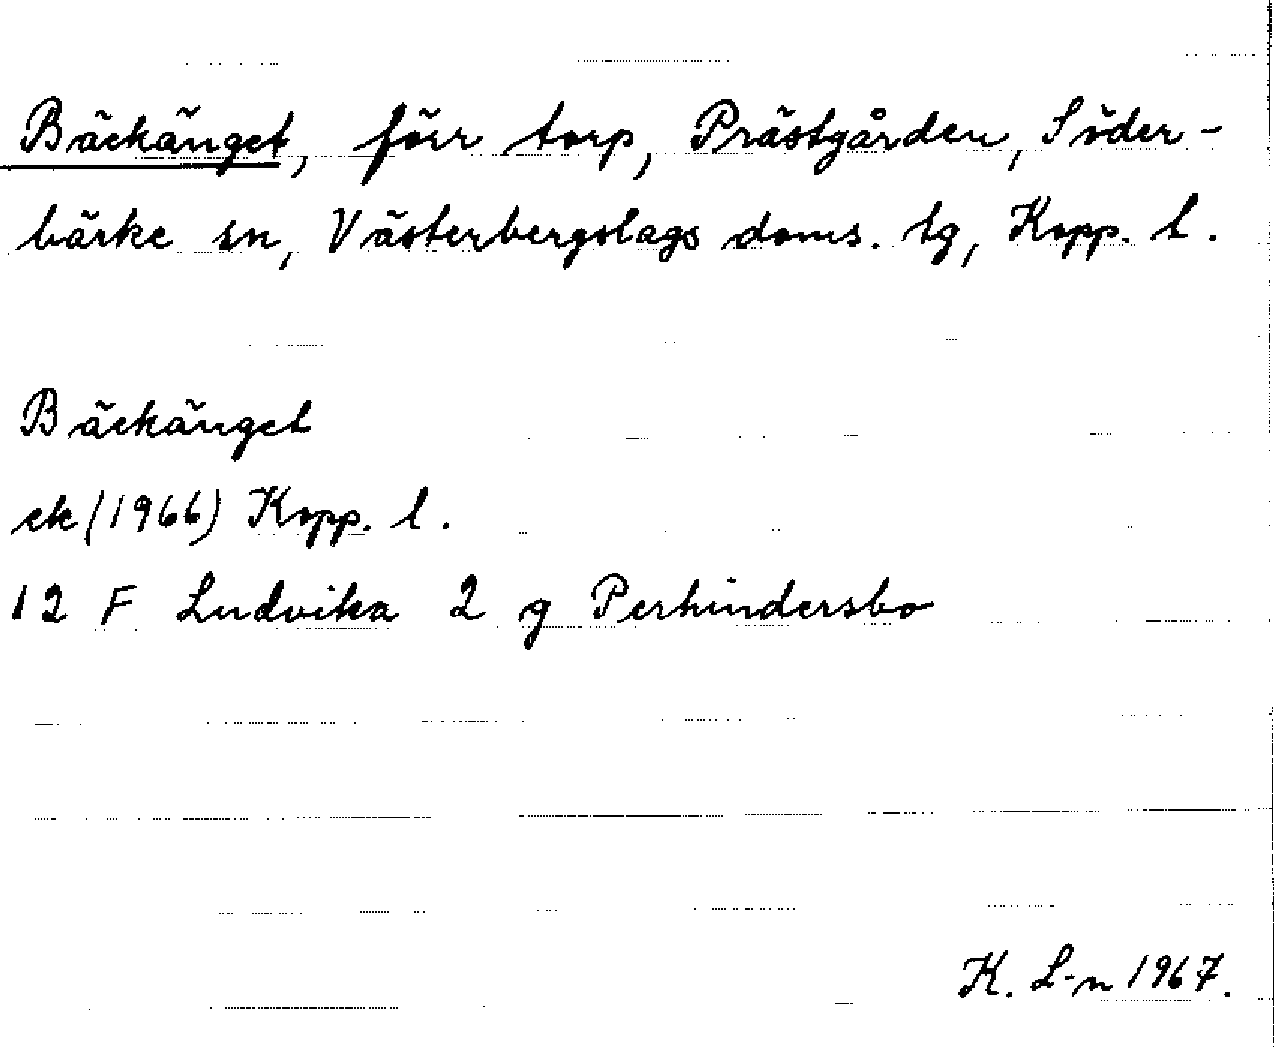 Bäckänget, förr torp, Prästgården, Söder-
bärke sn, Västerbergslags doms. tg, Kopp. l.
Bäckänget
ek (1966) Kopp. l.
12 F Ludvika 2 g Perhindersbo
K. L-n 1967.